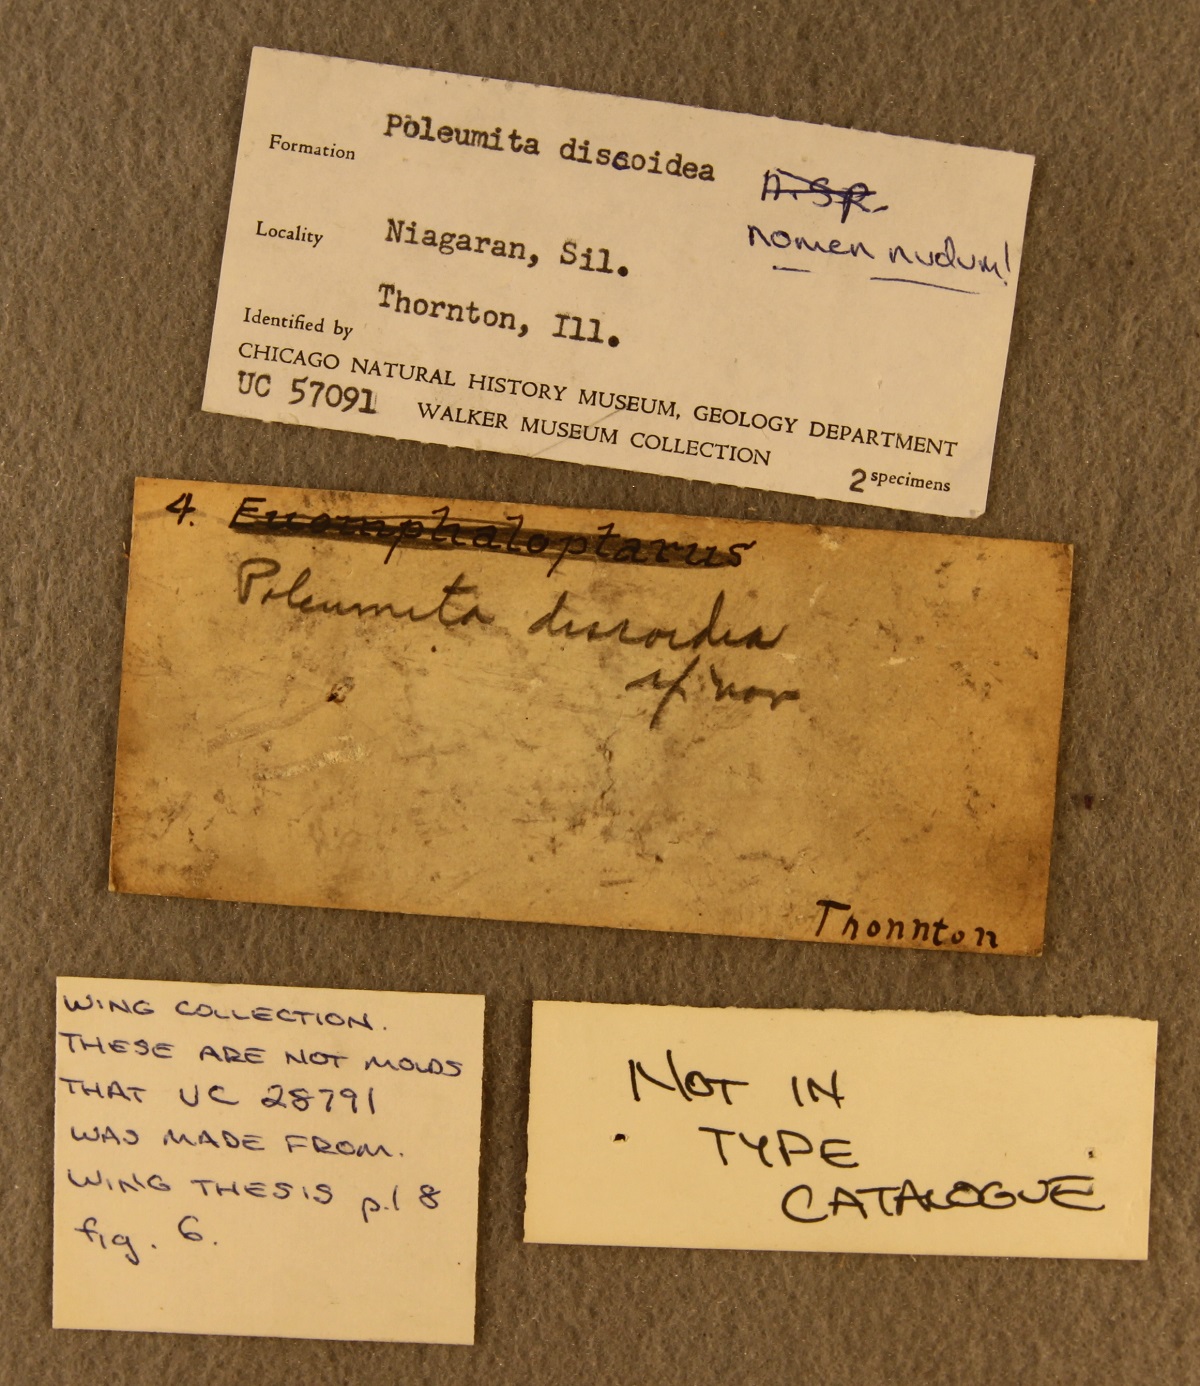 Poleumita discoidea
Formation
n.sp.
nomen nudum!
Locality
Niagaran, Sil.
Thornton, Ill.
Identified by
CHICAGO NATURAL HISTORY MUSEUM, GEOLOGY DEPARTMENT
UC 57091
WALKER MUSEUM COLLECTION
2 specimens
4. Euomphaloptarus
Poleumita discoidea
sp nov
Thonnton
WING COLLECTION.
THESE ARE NOT MOLDS
THAT UC 28791
WAS MADE FROM.
WING THESIS p.18
fig. 6.
NOT IN
TYPE
CATALOGUE